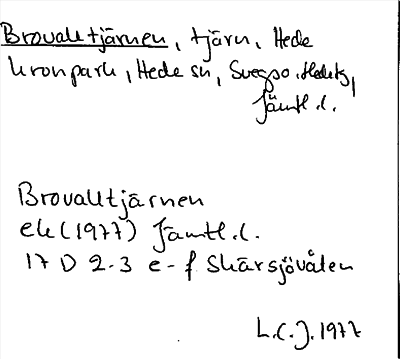 Brovalltjärnen, tjärn, Hede
kronpark, Hede sn, Svegs o. Hedetj,
Jämtl. l.
Brovalltjärnen
ek (1977) Jämtl. l.
17 D 2-3 e-f Skärsjövålen
L.C.J. 1977